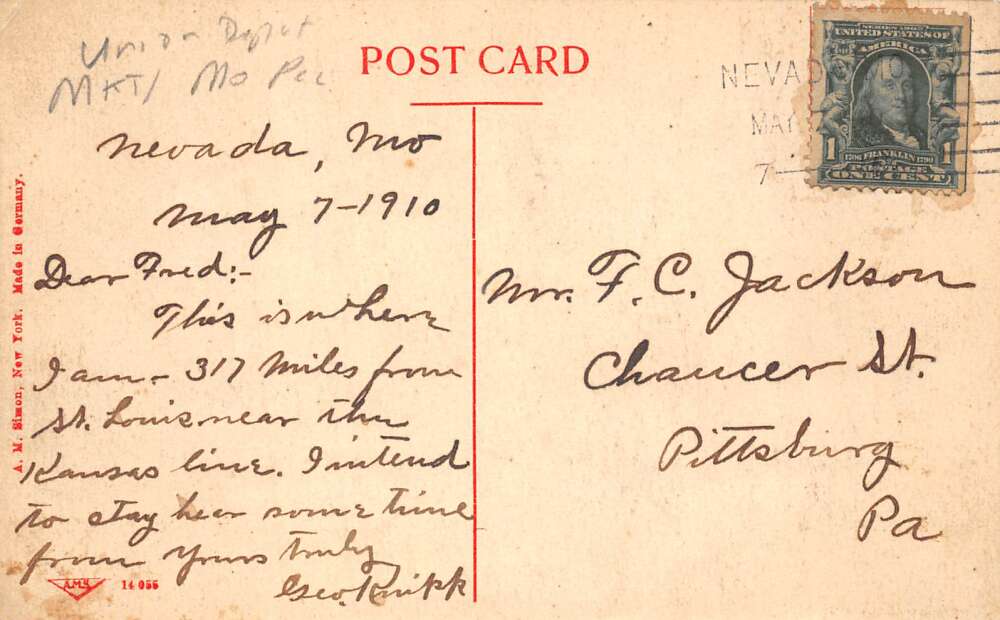 Union Depot
MKT / Mo Pac
POST CARD
Nevada, Mo
May 7-1910
Dear Fred:-
This is where
I am - 317 Miles from
St. Louis near the
Kansas line. I intend
to stay hear some time
from Yours truly
Geo. Knipk
Mr. F. C. Jackson
Chaucer St.
Pittsburg
Pa
NEVAD
MAY
7-
SERIES 1902
UNITED STATES OF
AMERICA
1
1
1706 FRANKLIN 1790
POSTAGE
ONE CENT
A. M. Simon, New York. Made in Germany.
A.M.S.
14 055